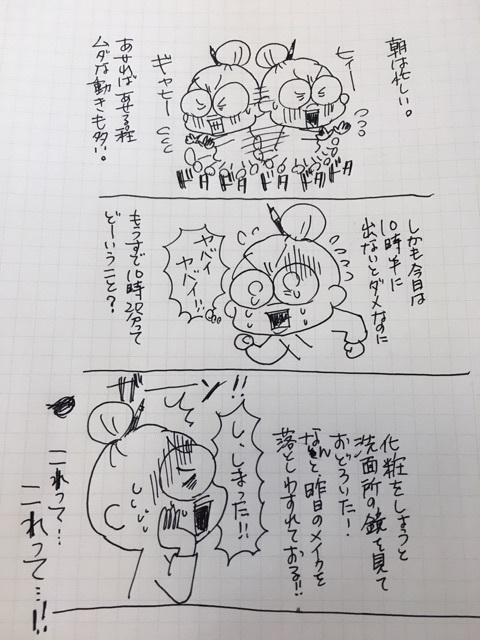 朝は忙しい。
ヒィー
ギャヒー
あせればあせる程
ムダな動きも多い。
ドタ ドタ ドタ ドタ ドタ
しかも今日は
10時半に
出ないとダメなのに
ヤバイ
ヤバイ!!
もうすで10時20分って
どーいうこと?
化粧をしようと
洗面所の鏡を見て
おどろいた!
なんと昨日のメイクを
落としわすれておる!!
ガーン!!
し、しまった!!
これって…
これって…!!